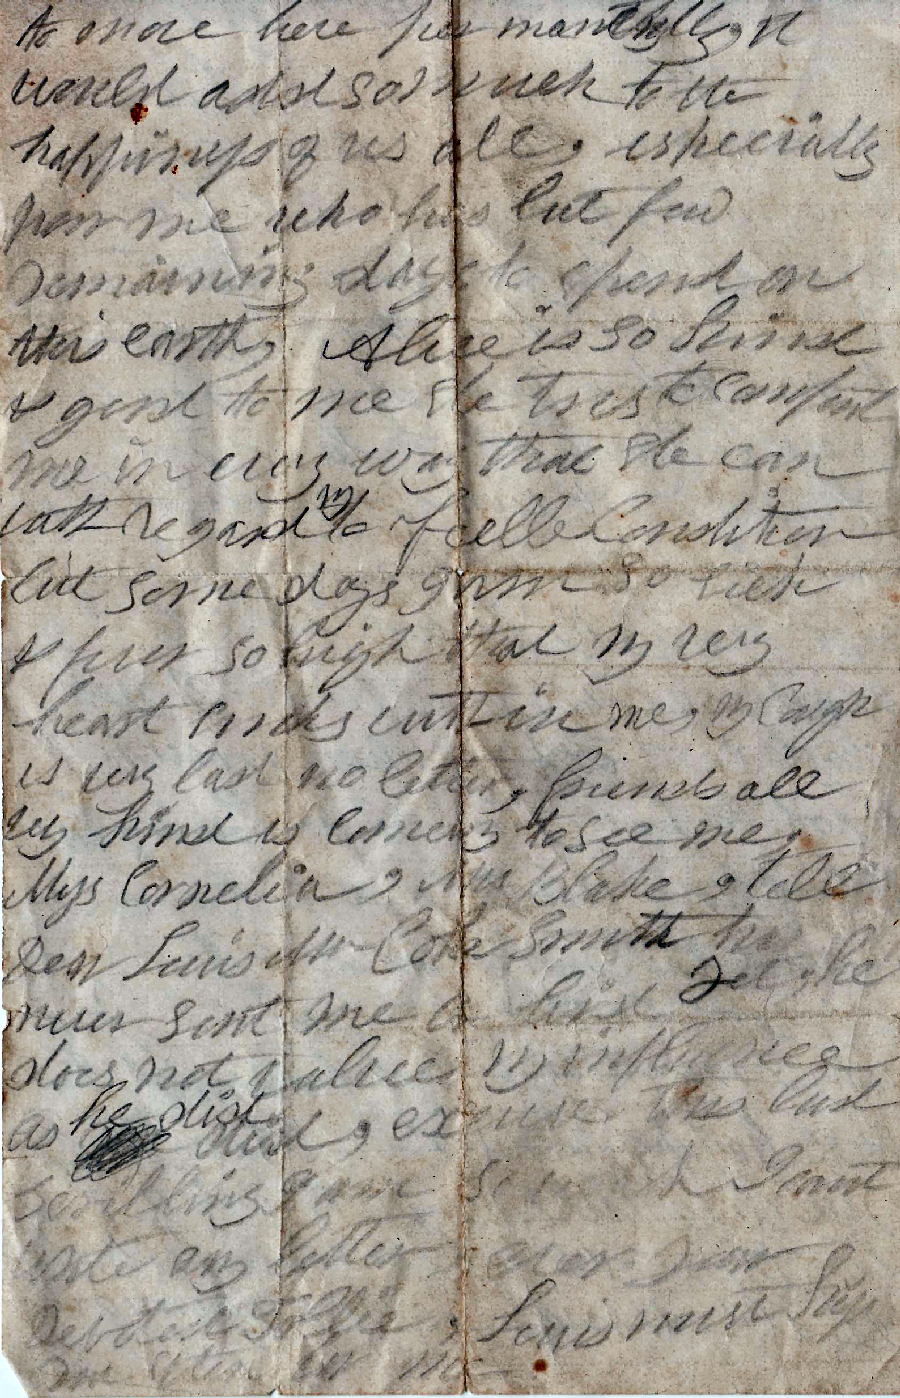 to move here permanently, it
would add so much to the
happiness of us all, especially
poor me who has but few
remaining days to spend on
this earth, Alice is so kind
& good to me she trys to comfort
me in every way that she can
with regard to my feeble condition
but some days I am so sick
& fever so high that my very
heart sinks within me, my cough
is very bad no better, friends all
very kind is coming to see me,
Miss Cornelia, Mrs Blake, tell
Dear Louis Mr Coke Smith has
never sent me a bird yet, he
does not value my influence
as he did, excuse this bad
scribbling I am so weak I cant
write any better, ever your
devoted, Louis must